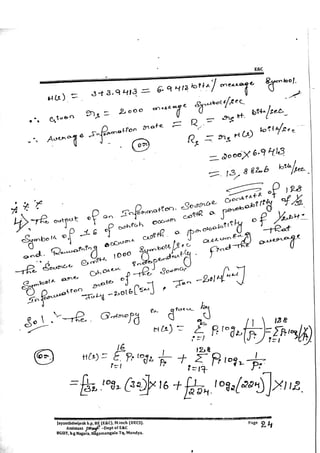 E&C
H(s) = 3+3.9413 = 6.9413 bits/message symbol.
∴ Given rs = 2000 message symbols/sec
∴ Average Information rate = R = rs H bits/sec
(or)
Rs = rs H(s) bits/sec
= 2000 × 6.9413
= 13,8826 bits/sec
4) The output of an Information Source consists of 128
Symbols 16 of which occur with a probability of 1/32
and Remaining occur with a probability of 1/224.
The Source emits 1000 Symbols/sec assuming that
Symbols are chosen independently. Find the average
Information rate of the Source
July-2016 Jan-2014
Sol: The Entropy is given by
H(s) = Σ Pi log2 1/Pi
i=1
(or) H(s) = Σ Pi log2 1/Pi + Σ Pi log2 1/Pi
i=1 i=17
= [1/32 log2 (32)]×16 + [1/224 log2 (224)]×112
Jayanthdwijesh h.p, BE (E&C), M.tech (DECS).
Assistant Prof –Dept of E&C
BGSIT, b.g Nagara, Nagamangala Tq, Mandya.
Page 24